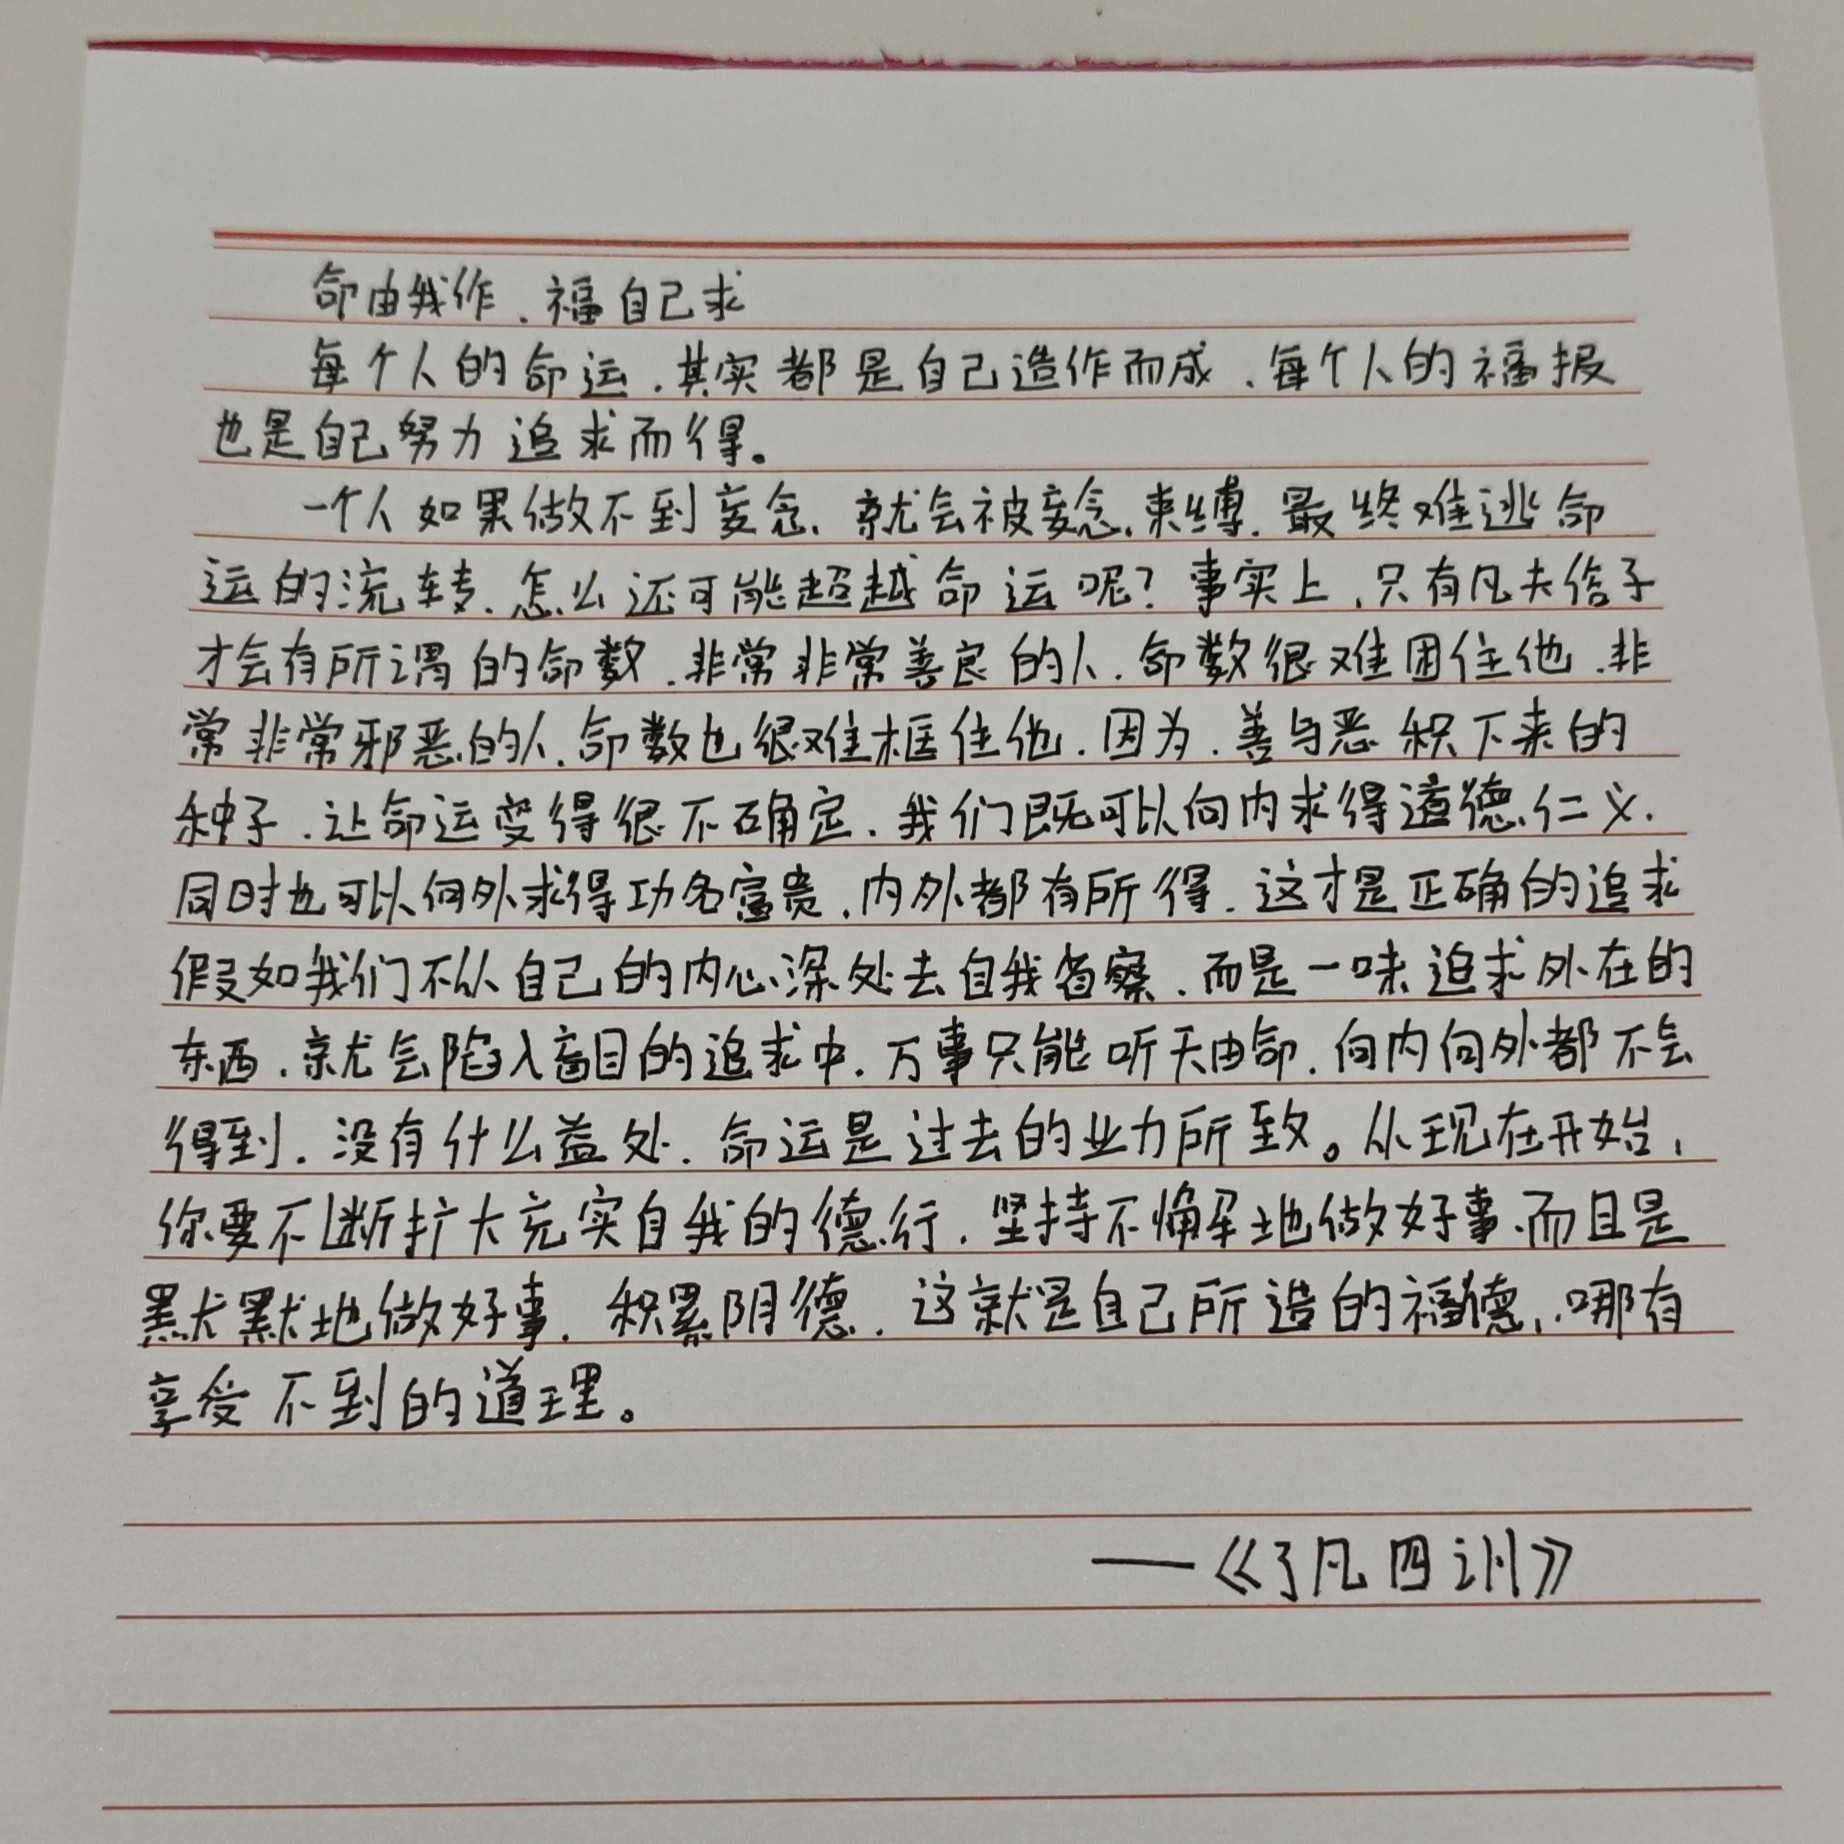 命由我作，福自己求
每个人的命运，其实都是自己造作而成，每个人的福报
也是自己努力追求而得。
一个人如果做不到妄念，就会被妄念束缚，最终难逃命
运的流转，怎么还可能超越命运呢？事实上，只有凡夫俗子
才会有所谓的命数，非常非常善良的人，命数很难困住他，非
常非常邪恶的人，命数也很难框住他，因为，善与恶积下来的
种子，让命运变得很不确定，我们既可以向内求得道德仁义，
同时也可以向外求得功名富贵，内外都有所得，这才是正确的追求
假如我们不从自己的内心深处去自我省察，而是一味追求外在的
东西，就会陷入盲目的追求中，万事只能听天由命，向内向外都不会
得到，没有什么益处，命运是过去的业力所致。从现在开始，
你要不断扩大充实自我的德行，坚持不懈地做好事，而且是
默默地做好事，积累阴德，这就是自己所造的福德，哪有
享受不到的道理。
——《了凡四训》